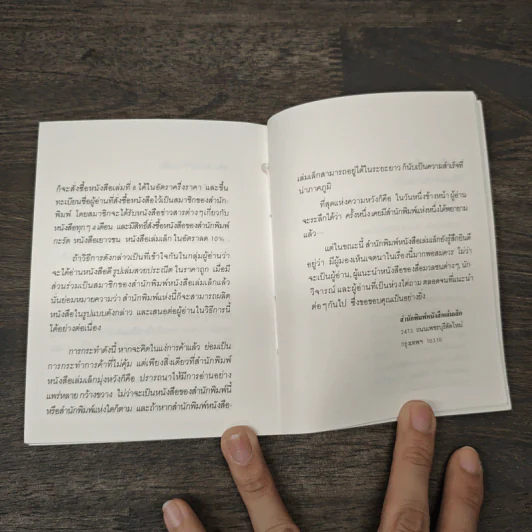 ก็จะสั่งซื้อหนังสือเล่มที่ 8 ได้ในอัตราครึ่งราคา และขึ้น
ทะเบียนชื่อผู้อ่านที่สั่งซื้อหนังสือไว้เป็นสมาชิกของสำนัก-
พิมพ์ โดยสมาชิกจะได้รับหนังสือข่าวสารต่างๆเกี่ยวกับ
หนังสือทุกๆ 4 เดือน และมีสิทธิสั่งซื้อหนังสือของสำนักพิมพ์
กะรัต หนังสือเยาวชน หนังสือเล่มเล็ก ในอัตราลด 10%
ถ้าวิธีการดังกล่าวเป็นที่เข้าใจกันในกลุ่มผู้อ่านว่า
จะได้อ่านหนังสือดี รูปเล่มสวยประณีต ในราคาถูก เมื่อมี
ส่วนร่วมเป็นสมาชิกของสำนักพิมพ์หนังสือเล่มเล็กแล้ว
นั่นย่อมหมายความว่า สำนักพิมพ์แห่งนี้ก็จะสามารถผลิต
หนังสือในรูปแบบดังกล่าว และเสนอต่อผู้อ่านในวิธีการนี้
ได้อย่างต่อเนื่อง
การกระทำดังนี้ หากจะคิดในแง่การค้าแล้ว ย่อมเป็น
การกระทำการค้าที่ไม่คุ้ม แต่เพียงสิ่งเดียวที่สำนักพิมพ์
หนังสือเล่มเล็กมุ่งหวังก็คือ ปรารถนาให้มีการอ่านอย่าง
แพร่หลาย กว้างขวาง ไม่ว่าจะเป็นหนังสือของสำนักพิมพ์นี้
หรือสำนักพิมพ์แห่งใดก็ตาม และถ้าหากสำนักพิมพ์หนังสือ-
เล่มเล็กสามารถอยู่ได้ในระยะยาว ก็นับเป็นความสำเร็จที่
น่าภาคภูมิ
ที่สุดแห่งความหวังก็คือ ในวันหนึ่งข้างหน้าผู้อ่าน
จะระลึกได้ว่า ครั้งหนึ่งเคยมีสำนักพิมพ์แห่งหนึ่งได้พยายาม
แล้ว…
แต่ในขณะนี้ สำนักพิมพ์หนังสือเล่มเล็กยังรู้สึกยินดี
อยู่ว่า มีผู้มองเห็นเจตนาในเรื่องนี้มากพอสมควร ไม่ว่า
จะเป็นผู้อ่าน, ผู้แนะนำหนังสือของสื่อมวลชนต่างๆ นัก
วิจารณ์ และผู้อ่านที่เป็นห่วงไต่ถาม ตลอดจนที่แนะนำ
ต่อๆกันไป ซึ่งขอขอบคุณเป็นอย่างยิ่ง
สำนักพิมพ์หนังสือเล่มเล็ก
ถนนเพชรบุรีตัดใหม่
กรุงเทพฯ 10310